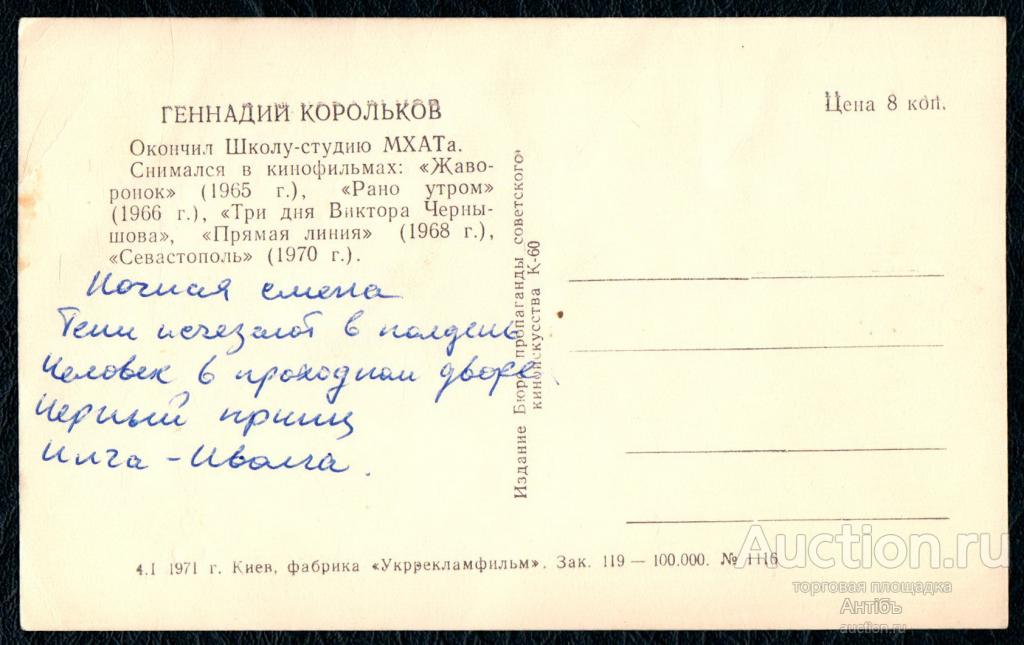 ГЕННАДИЙ КОРОЛЬКОВ
Окончил Школу-студию МХАТа.
Снимался в кинофильмах: «Жаво-
ронок» (1965 г.), «Рано утром»
(1966 г.), «Три дня Виктора Черны-
шова», «Прямая линия» (1968 г.),
«Севастополь» (1970 г.).
Ночная смена
Тени исчезают в полдень
Человек в проходном дворе
Черный принц
Илга-Иволга.
Издание Бюро пропаганды советского
киноискусства К-60
Цена 8 коп.
4.I 1971 г. Киев, фабрика «Укррекламфильм». Зак. 119 — 100.000. № 1116
Auction.ru
торговая площадка
Антiбъ
auction.ru